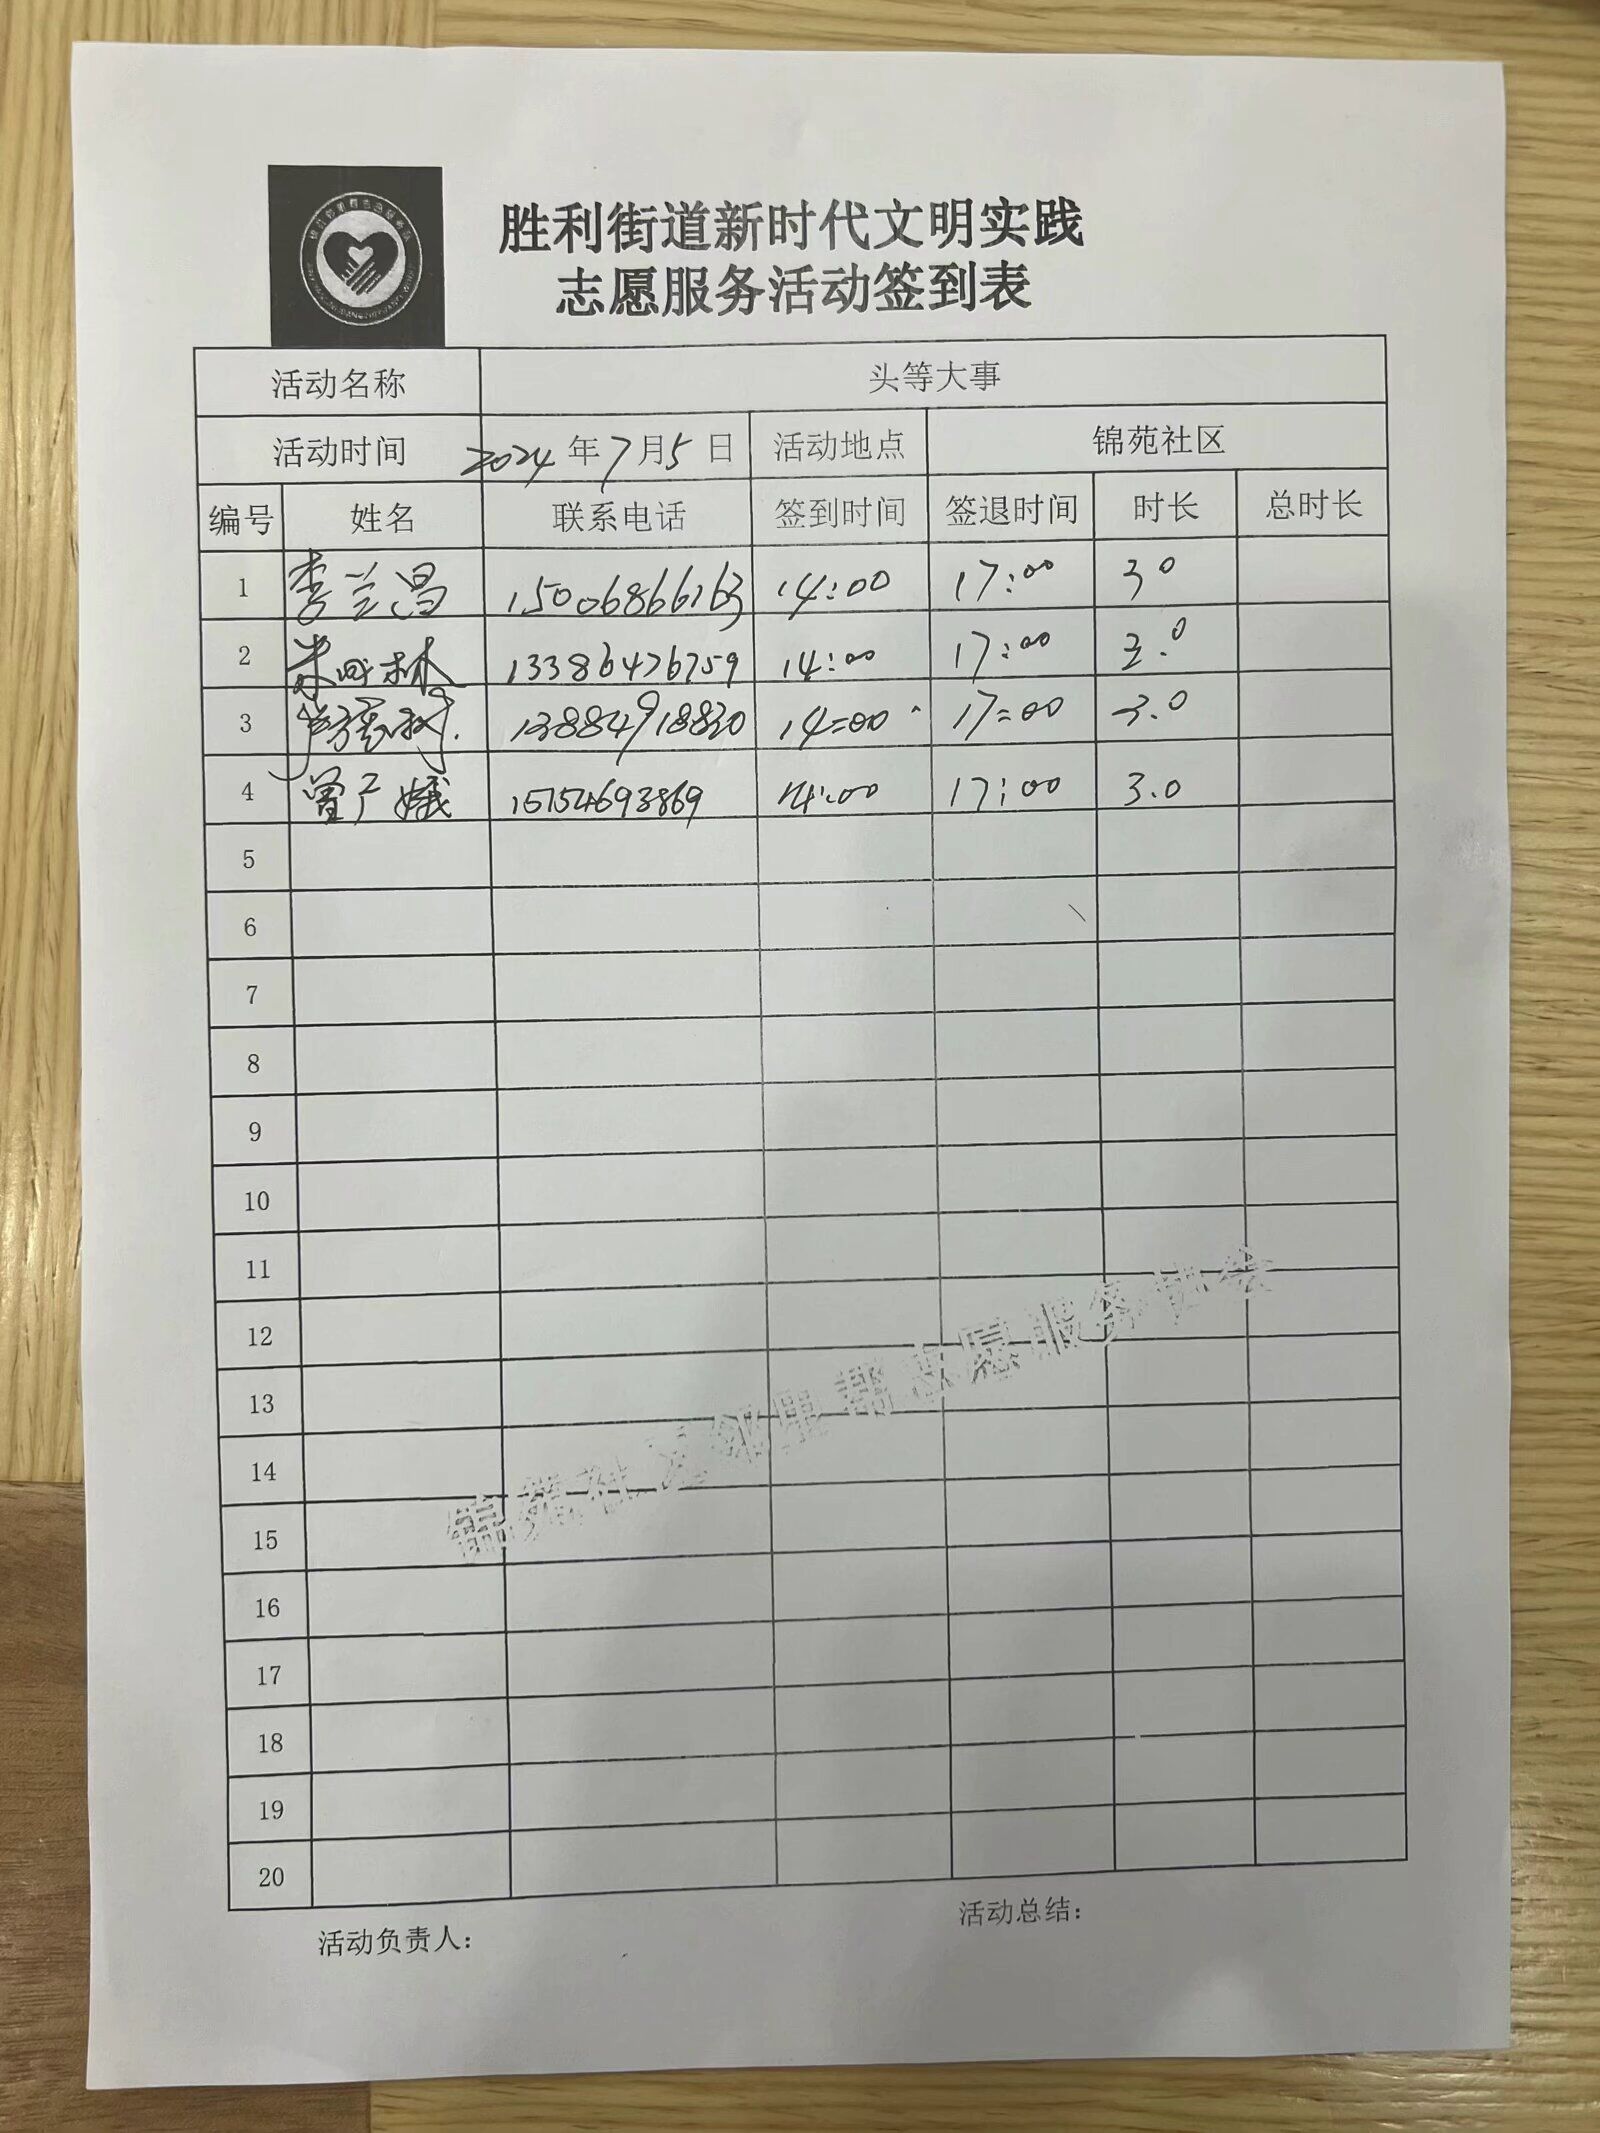 胜利街道新时代文明实践
志愿服务活动签到表
活动名称 头等大事
活动时间 2024年7月5日 活动地点 锦苑社区
编号 姓名 联系电话 签到时间 签退时间 时长 总时长
1 李兰昌 15006866163 14:00 17:00 3.0
2 朱 林 13386476759 14:00 17:00 3.0
3 13884918830 14:00 17:00 3.0
4 曾广娥 15154693869 14:00 17:00 3.0
5
6
7
8
9
10
11
12
13
14
15
16
17
18
19
20
锦苑社区邻里帮志愿服务协会
活动负责人： 活动总结：